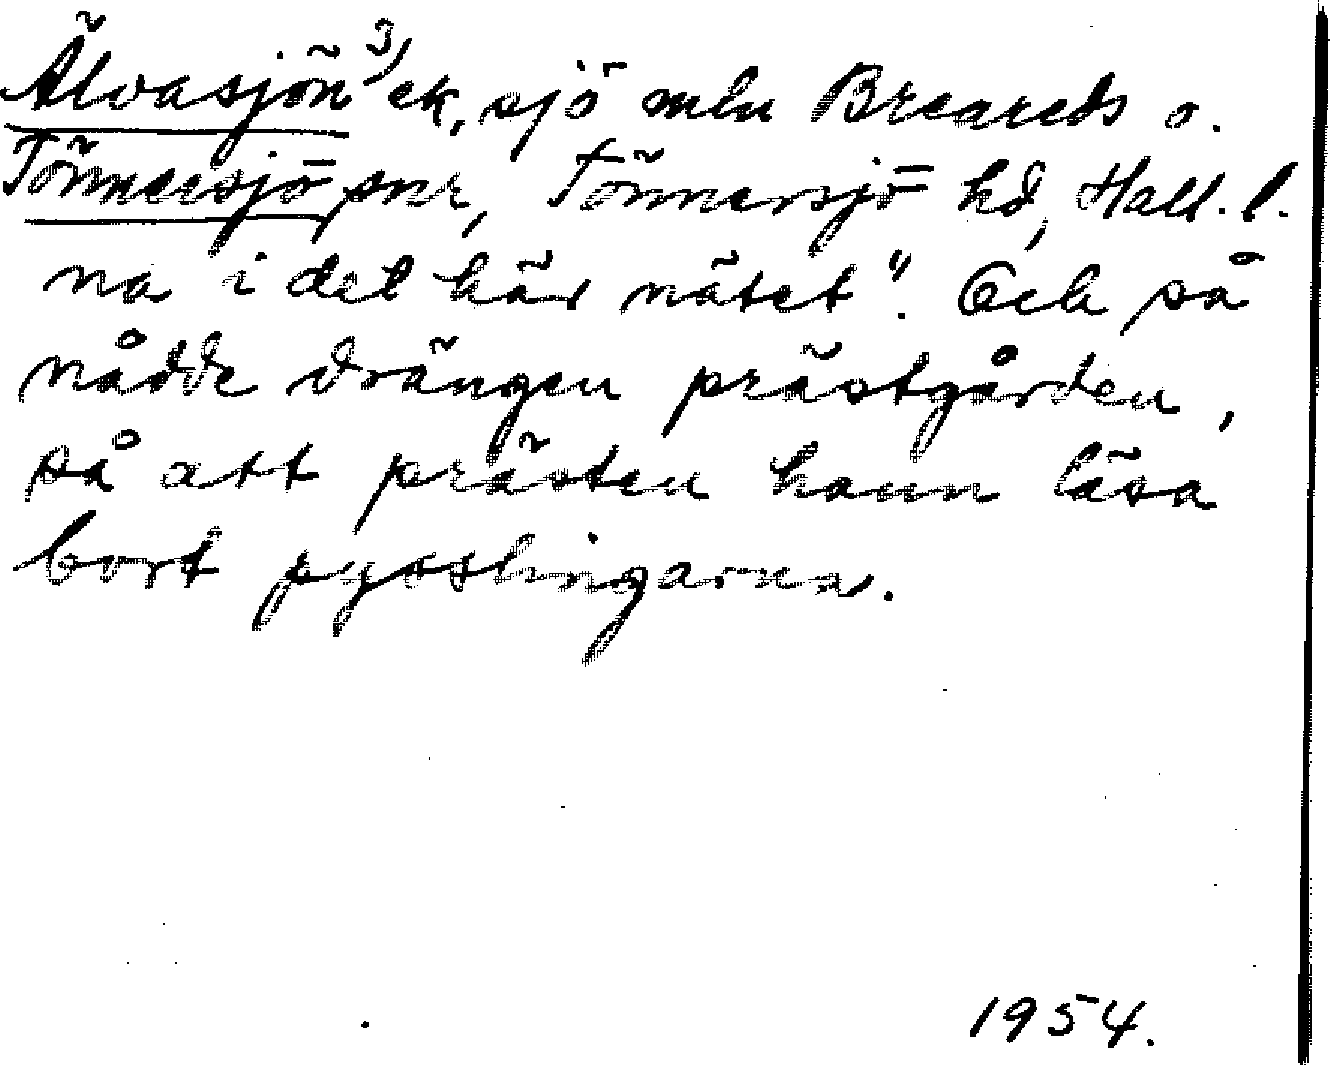 Älvasjön 3) ek, sjö mln Breareds o.
Tönnersjö snr, Tönnersjö hd, Hall. l.
na i det här nätet". Och så
nådde drängen prästgården,
så att prästen hann läsa
bort pysslingarna.
1954.